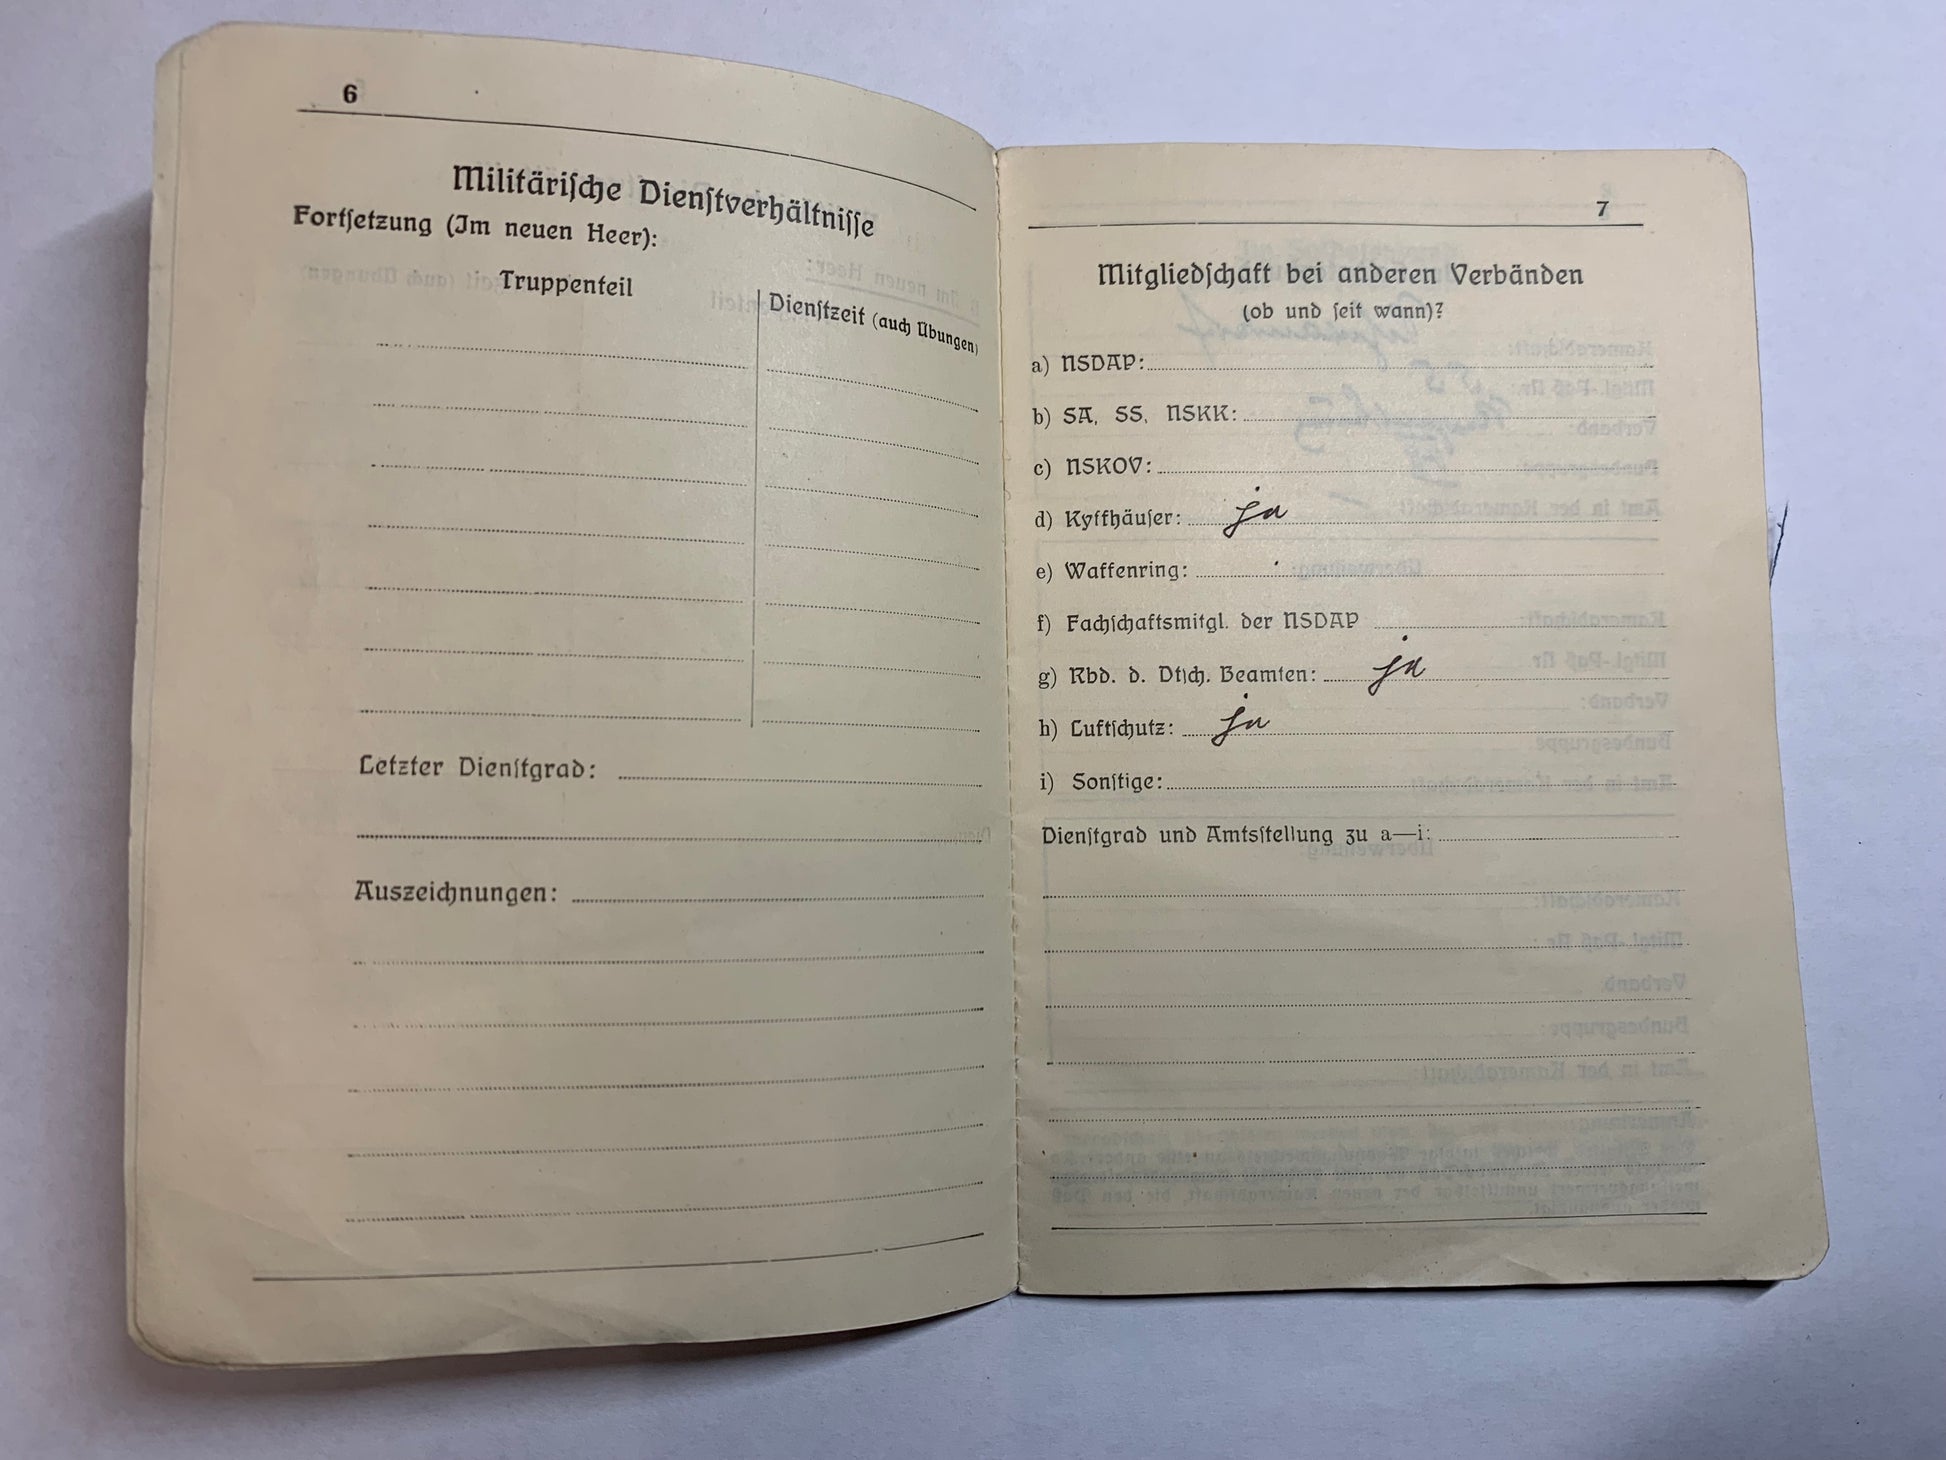 6
Militärische Dienstverhältnisse
Fortsetzung (Im neuen Heer):
Truppenteil
Dienstzeit (auch Übungen)
Letzter Dienstgrad:
Auszeichnungen:
7
Mitgliedschaft bei anderen Verbänden
(ob und seit wann)?
a) NSDAP:
b) SA, SS, NSKK:
c) NSKOV:
d) Kyffhäuser: ja
e) Waffenring:
f) Fachschaftsmitgl. der NSDAP
g) Rbd. d. Dtsch. Beamten: ja
h) Luftschutz: ja
i) Sonstige:
Dienstgrad und Amtsstellung zu a—i: